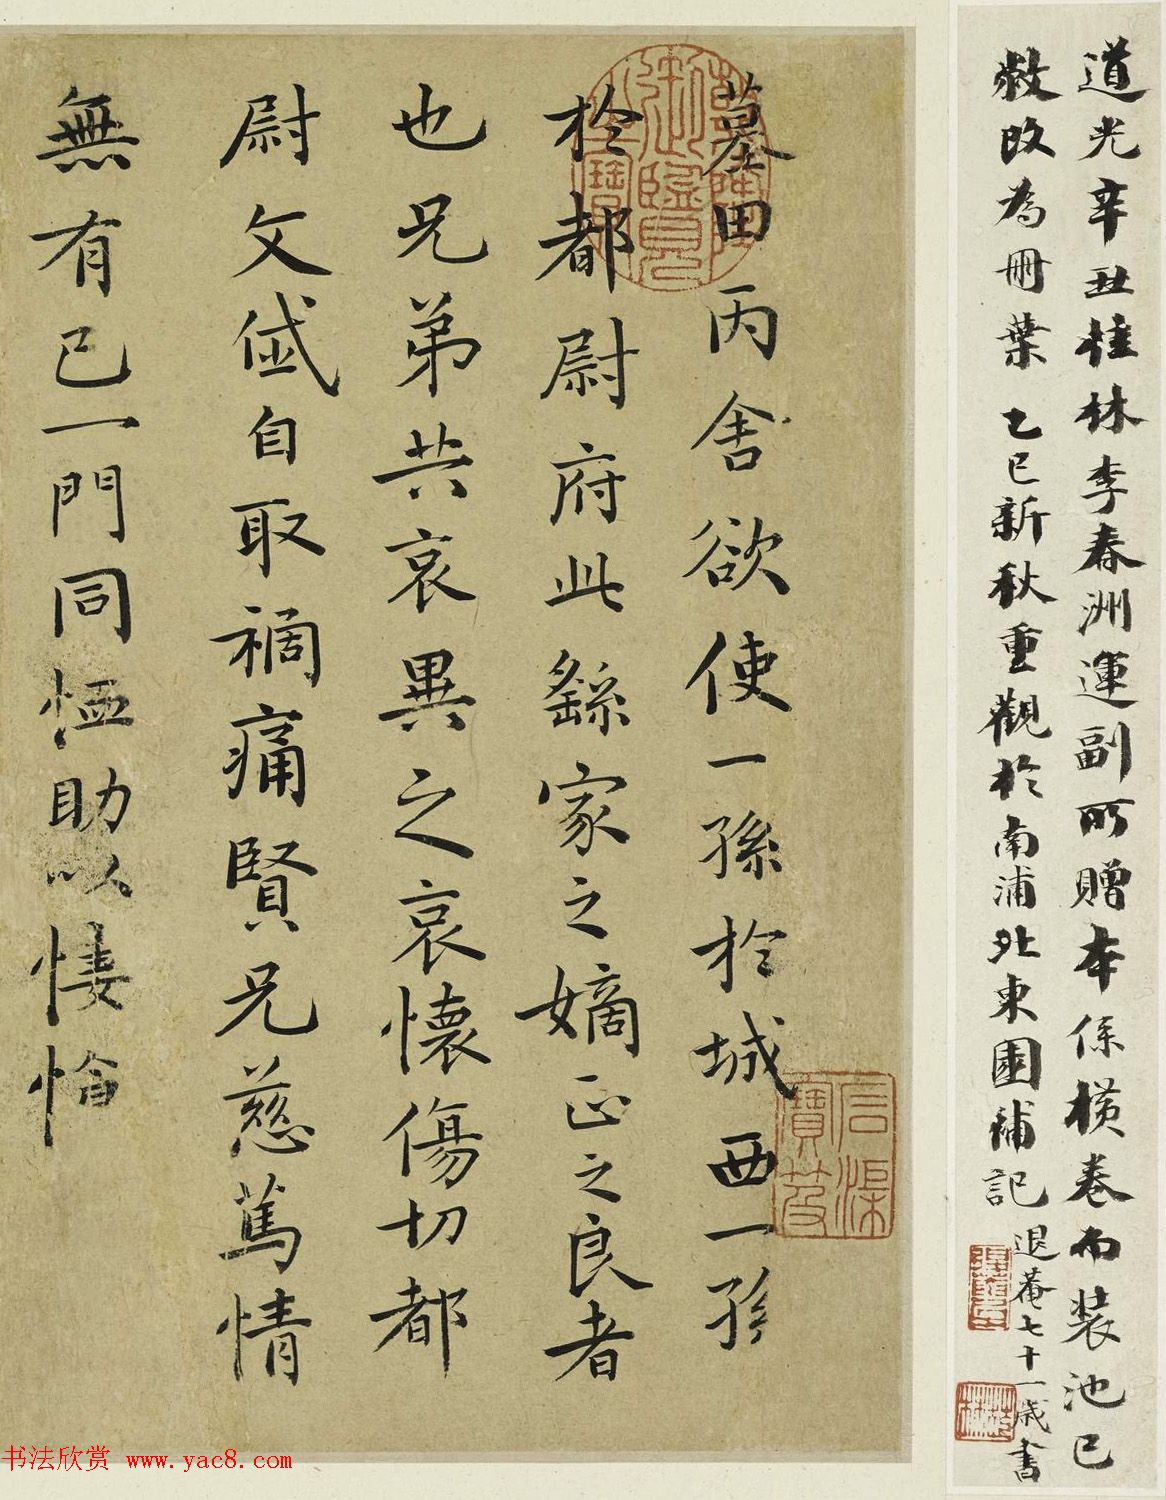 道光辛丑桂林李春洲運副所贈本係橫卷而裝池已
敝改為冊葉 乙巳新秋重觀於南浦北東園補記
退菴七十一歲書
墓田丙舍欲使一孫於城西一孫
於都尉府此繇家之嫡正之良者
也兄弟共哀異之哀懷傷切都
尉文岱自取禍痛賢兄慈篤情
無有已一門同恤助以悽愴
石渠寶笈
嘉慶御覽之寶
书法欣赏 www.yac8.com